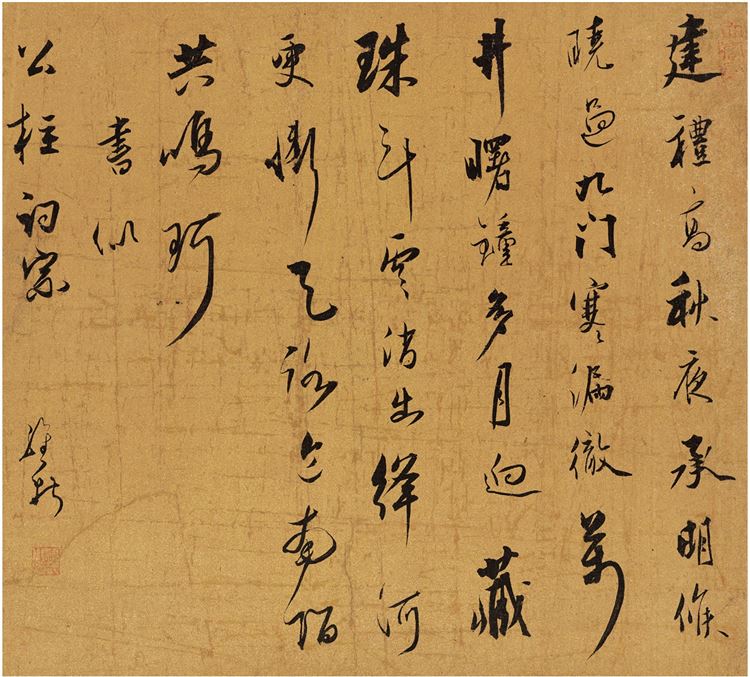 建禮高秋夜承明候
曉過九門寒漏徹萬
井曙鐘多月迥藏
珠斗雲消出絳河
更慚南陌
共鳴珂
書似
公柱詞宗